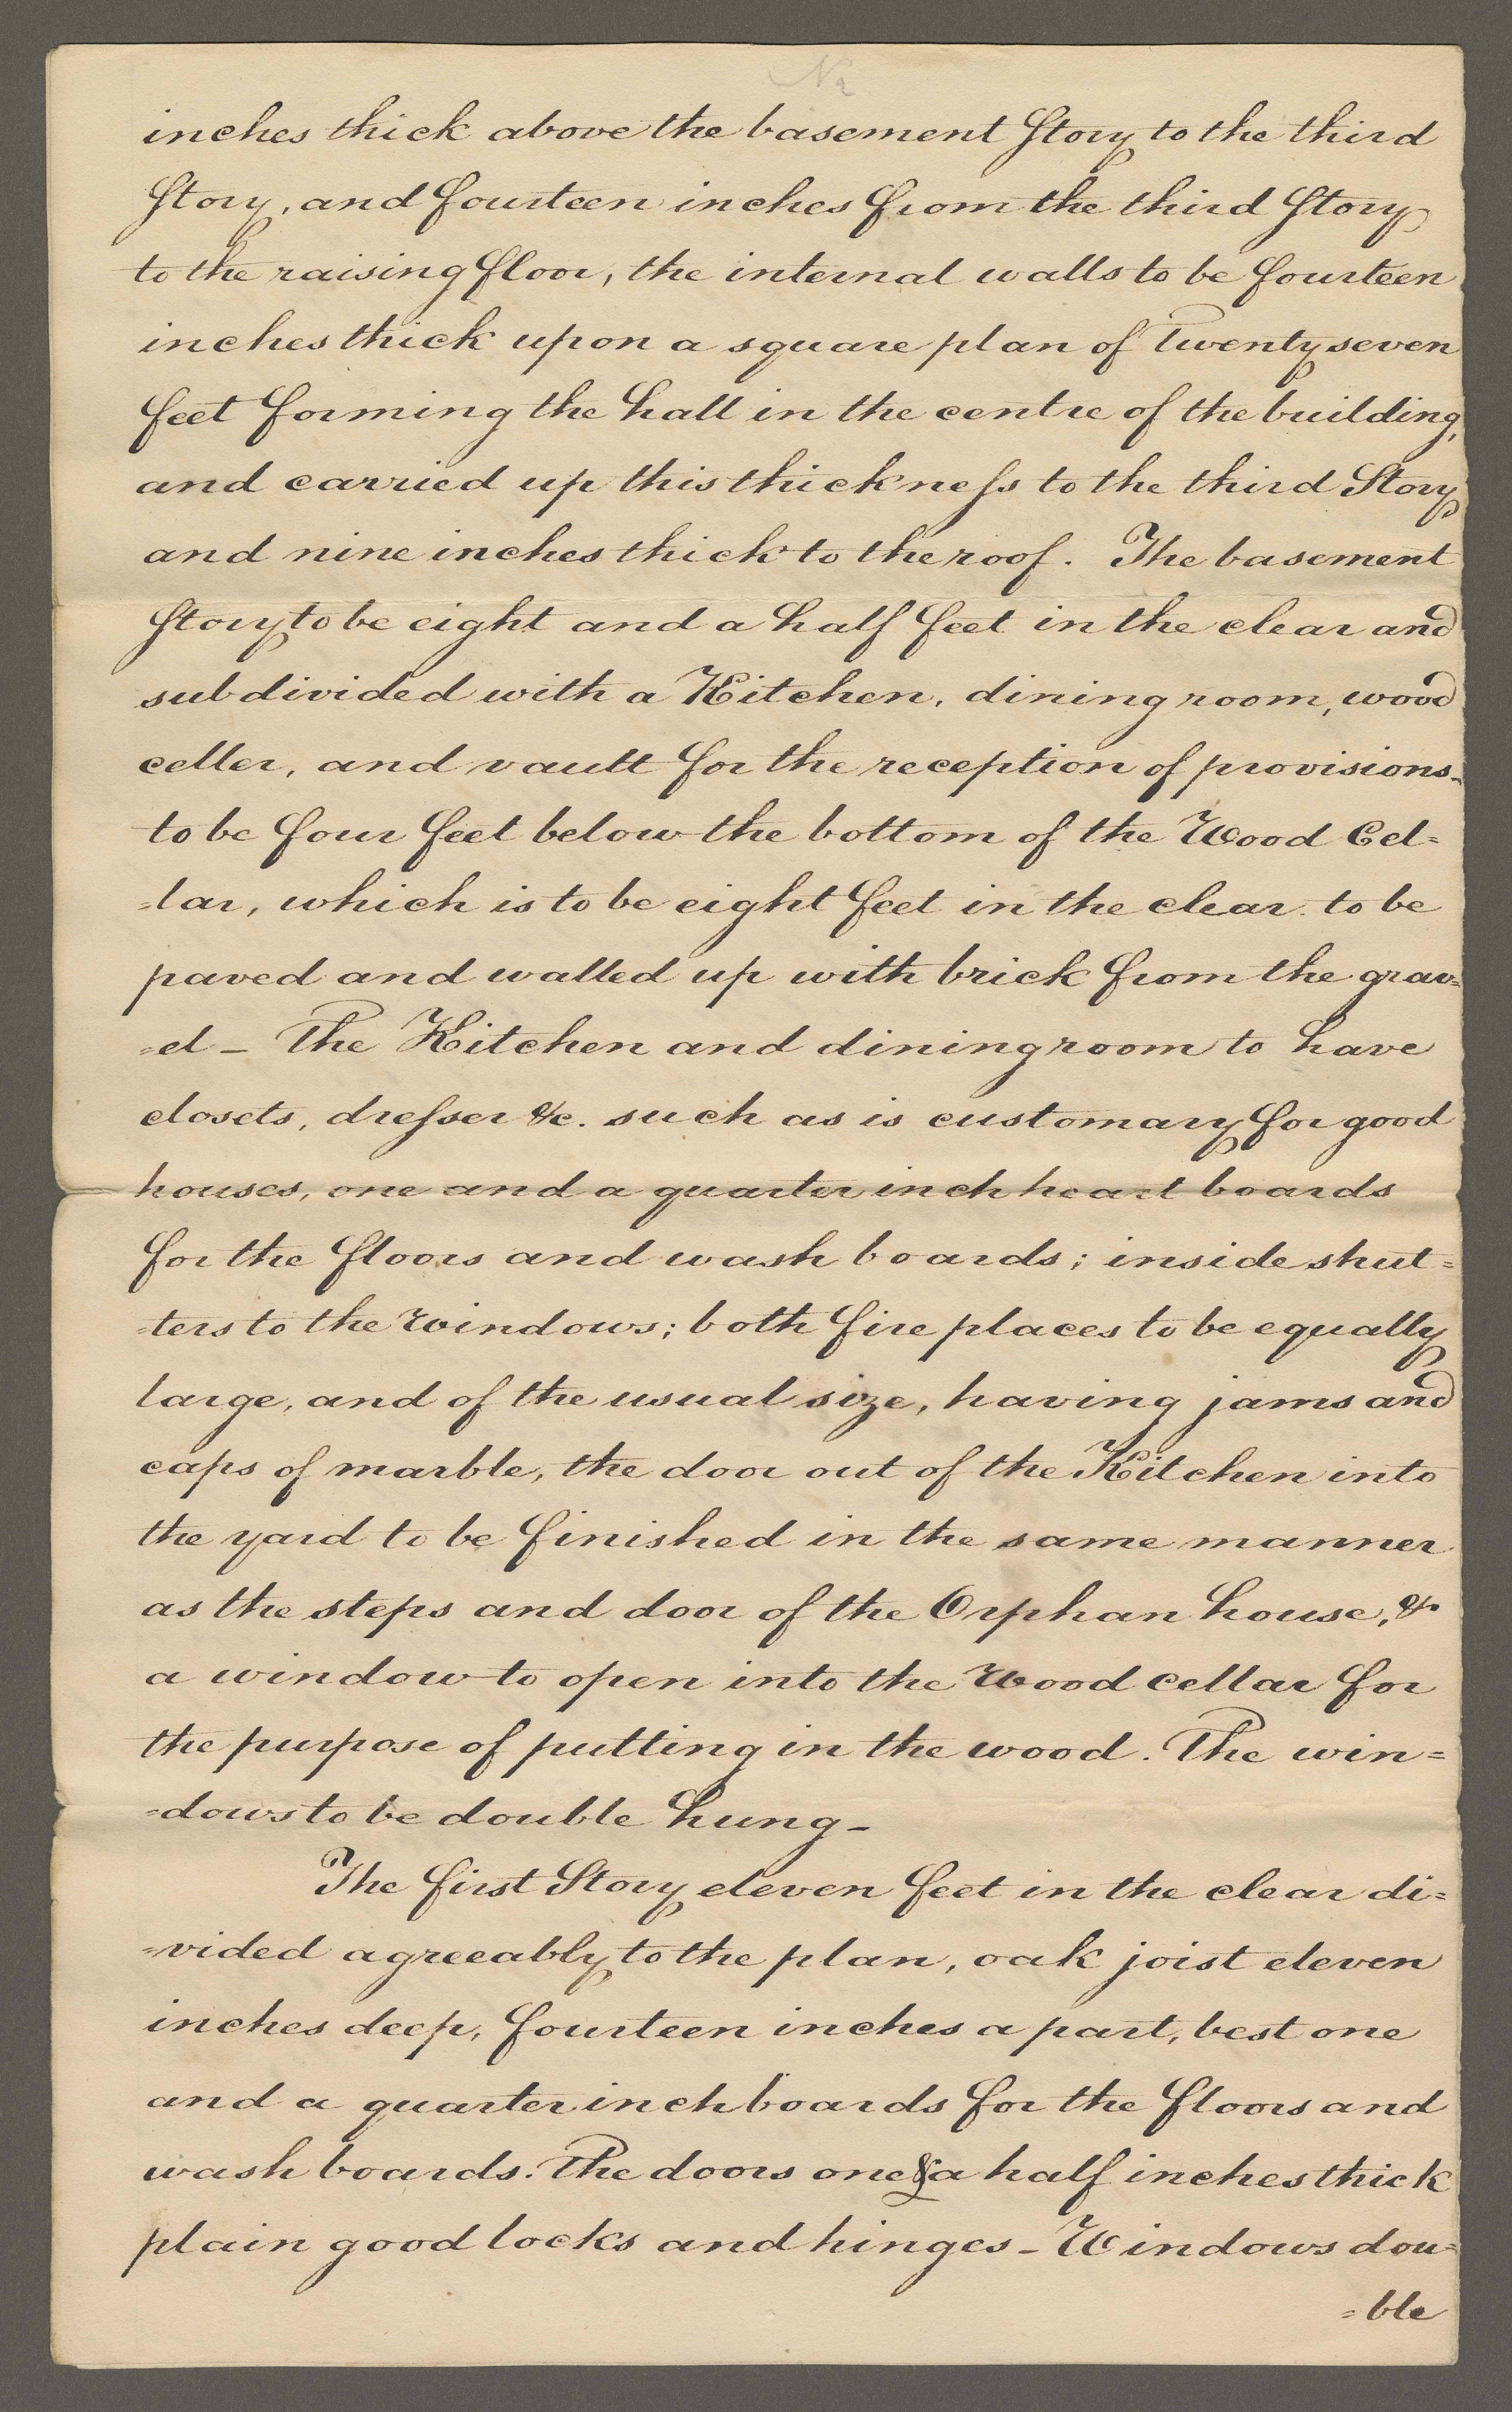 inches thick above the basement Story to the third
Story, and fourteen inches from the third Story
to the raising floor, the internal walls to be fourteen
inches thick upon a square plan of Twenty seven
feet forming the hall in the centre of the building,
and carried up this thickneſs to the third Story,
and nine inches thick to the roof. The basement
Story to be eight and a half feet in the clear and
subdivided with a Kitchen, dining room, wood
celler, and vault for the reception of provisions-
to be four feet below the bottom of the Wood Cel=
=lar, which is to be eight feet in the clear. to be
paved and walled up with brick from the grav=
=el - The Kitchen and dining room to have
closets, dreſser &c. such as is customary for good
houses, one and a quarter inch heart boards
for the floors and wash boards; inside shut=
=ters to the Windows; both fire places to be equally
large, and of the usual size, having jams and
caps of marble, the door out of the Kitchen into
the yard to be finished in the same manner
as the steps and door of the Orphan house, &
a window to open into the Wood cellar for
the purpose of putting in the wood. The win=
=dows to be double hung -
The first Story eleven feet in the clear di=
=vided agreeably to the plan, oak joist eleven
inches deep, fourteen inches a part, best one
and a quarter inch boards for the floors and
wash boards. The doors one & a half inches thick
plain good locks and hinges - Windows dou=
=ble